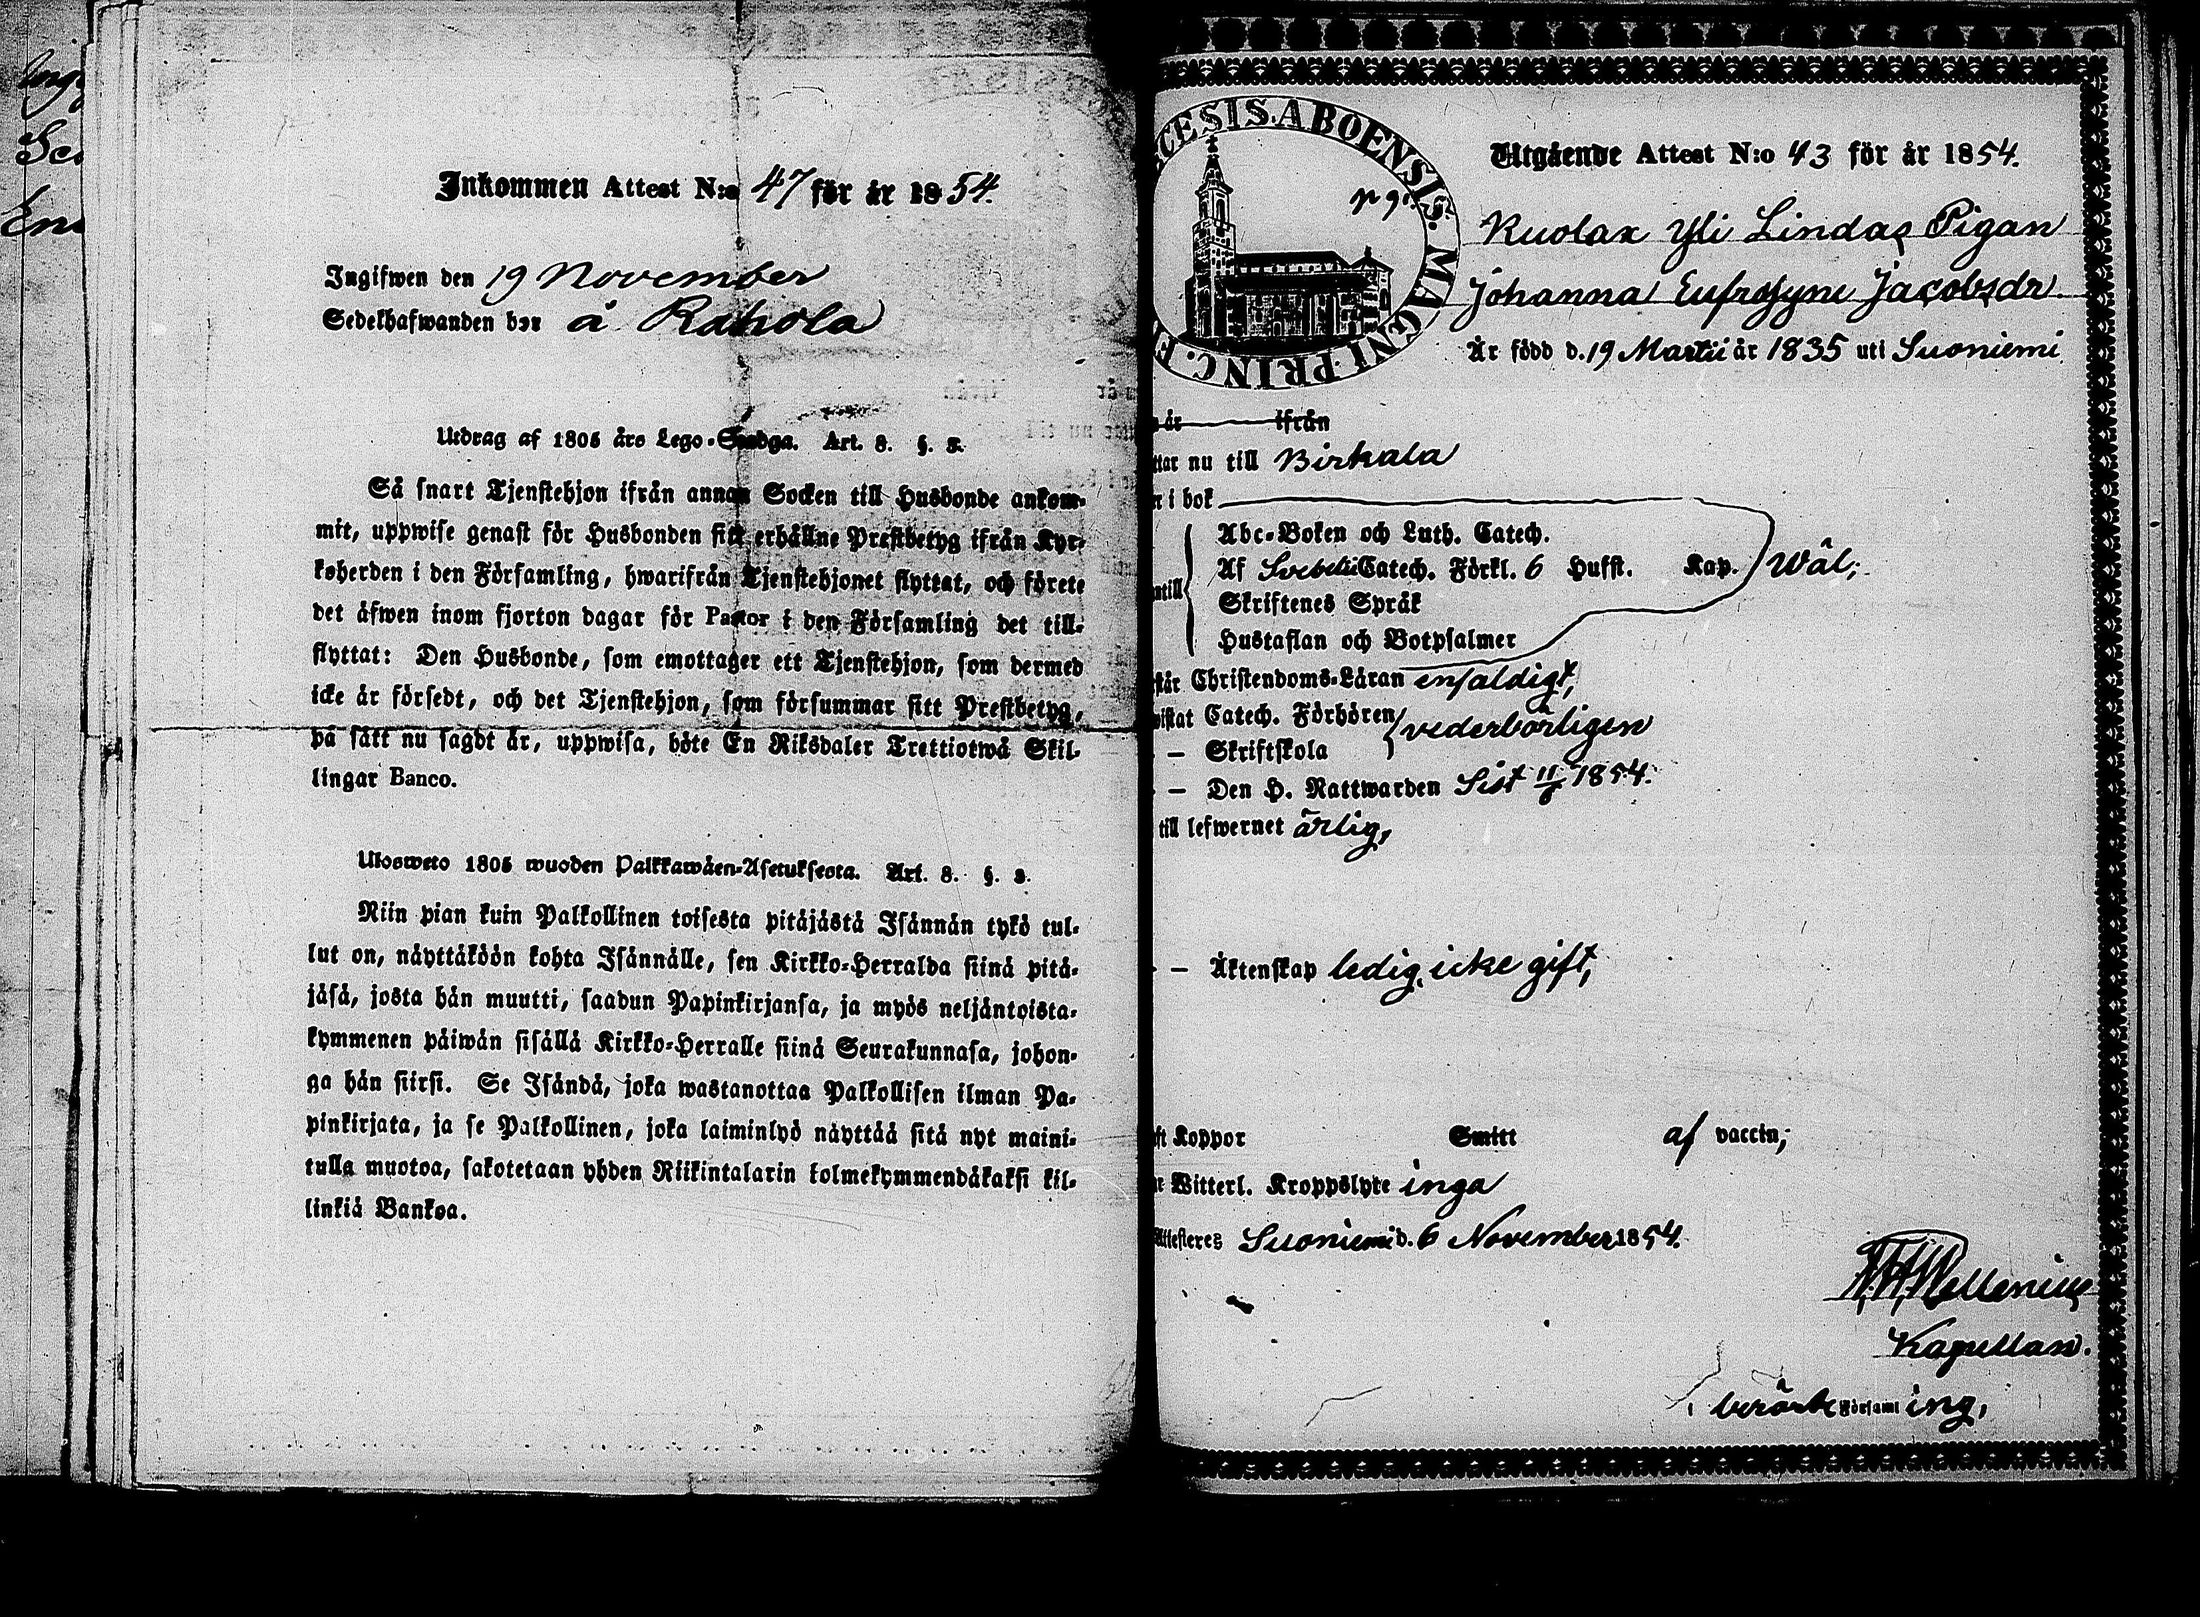 Inkommen Attest N:o 47 för år 1854.
Ingifwen den 19 November
Sedelhafwanden bor å Rahola
Utdrag af 1805 års Lego-Stadga. Art. 8. §. 3.
Så snart Tjenstehjon ifrån annan Socken till Husbonde ankom-
mit, uppwise genast för Husbonden sitt erhållne Prestbetyg ifrån Kyr-
koherden i den Församling, hwarifrån Tjenstehjonet flyttat, och förete
det äfwen inom fjorton dagar för Pastor i den Församling det till-
flyttat: Den Husbonde, som emottager ett Tjenstehjon, som dermed
icke är försedt, och det Tjenstehjon, som försummar sitt Prestbetyg,
på sätt nu sagdt är, uppwisa, böte En Riksdaler Trettiotwå Skil-
lingar Banco.
Ulosweto 1805 wuoden Palkkawäen-Asetuksesta. Art. 8. §. 3.
Niin pian kuin Palkollinen toisesta pitäjästä Isännän tykö tul-
lut on, näyttäköön kohta Isännälle, sen Kirkko-Herralda siinä pitä-
jäsä, josta hän muutti, saadun Papinkirjansa, ja myös neljäntoista-
kymmenen päiwän sisällä Kirkko-Herralle siinä Seurakunnasa, johon-
ga hän siirsi. Se Isändä, joka wastanottaa Palkollisen ilman Pa-
pinkirjata, ja se Palkollinen, joka laiminlyö näyttää sitä nyt maini-
tulla muotoa, sakotetaan yhden Riikintalarin kolmekymmendäkaksi kil-
linkiä Bankoa.
CESIS. ABOENSIS. MAGNI. PRINC. F
Utgående Attest N:o 43 för år 1854.
Kuolax Yli Lindas Pigan
Johanna Eufrosyne Jacobsdr
Är född d. 19 Martii år 1835 uti Suoniemi
år ifrån
ttar nu till Birkala
r i bok
Abc-Boken och Luth. Catech.
Af Svebelii Catech. Förkl. 6 Husst. Kap. Wäl;
ntill Skriftenes Språk
Hustaflan och Botpsalmer
står Christendoms-Läran enfaldigt,
wistat Catech. Förhören vederbörligen
— Skriftskola
— Den H. Nattwarden Sist 11/6 1854.
till lefwernet ärlig,
— Äktenskap ledig, icke gift,
ft Koppor Smitt af vaccin;
r Witterl. Kroppslyte inga
Attesteres Suoniemi d. 6 November 1854.
Mellenius
Kapellan.
berörde Församling,